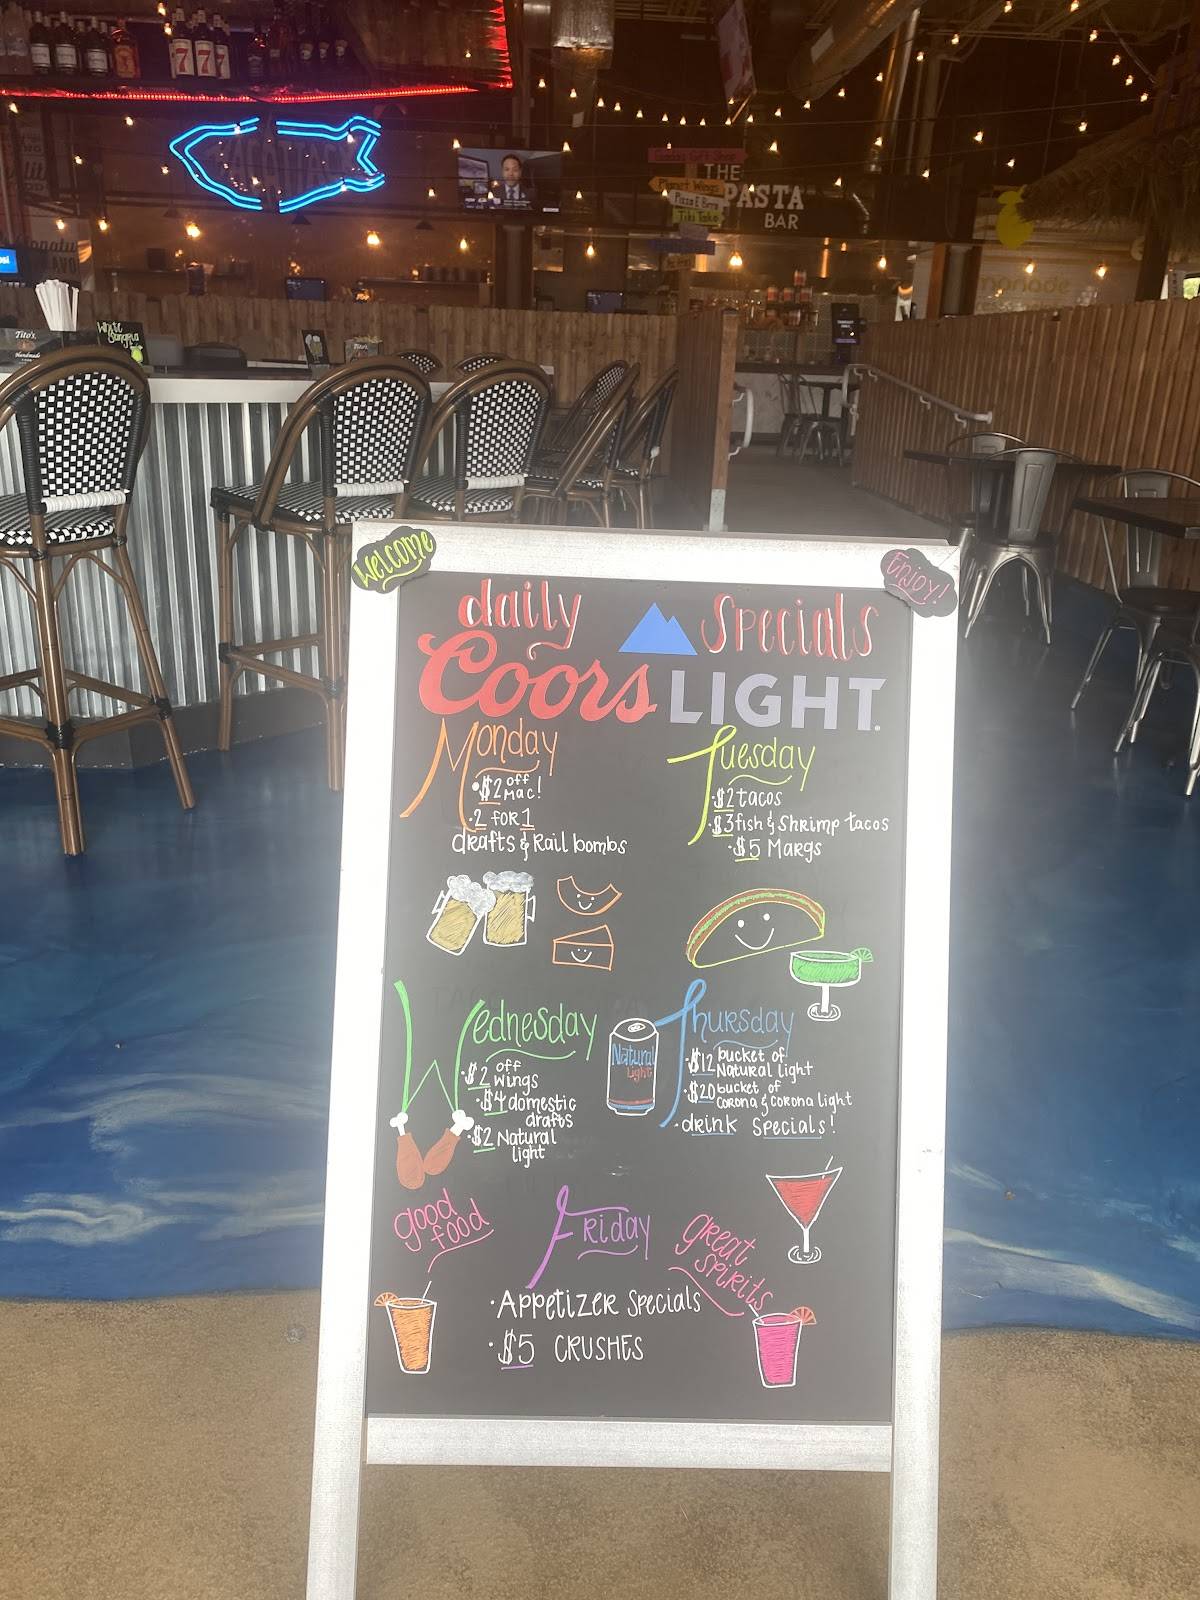 7 7 7
THE
PASTA
BAR
Planet Wings
Pizza E Birra
Tiki Tako
Tito's
Handmade
White
Sangria
Welcome
Enjoy!
daily Specials
Coors LIGHT
Monday
• $2 off Mac!
• 2 for 1
drafts & Rail bombs
Tuesday
• $2 tacos
• $3 fish & Shrimp tacos
• $5 Margs
Wednesday
• $2 off wings
• $4 domestic
drafts
• $2 Natural
light
Natural
Light
Thursday
• $12 bucket of Natural light
• $20 bucket of Corona & corona light
• drink Specials!
good
food
Friday
great
spirits
• Appetizer Specials
• $5 CRUSHES